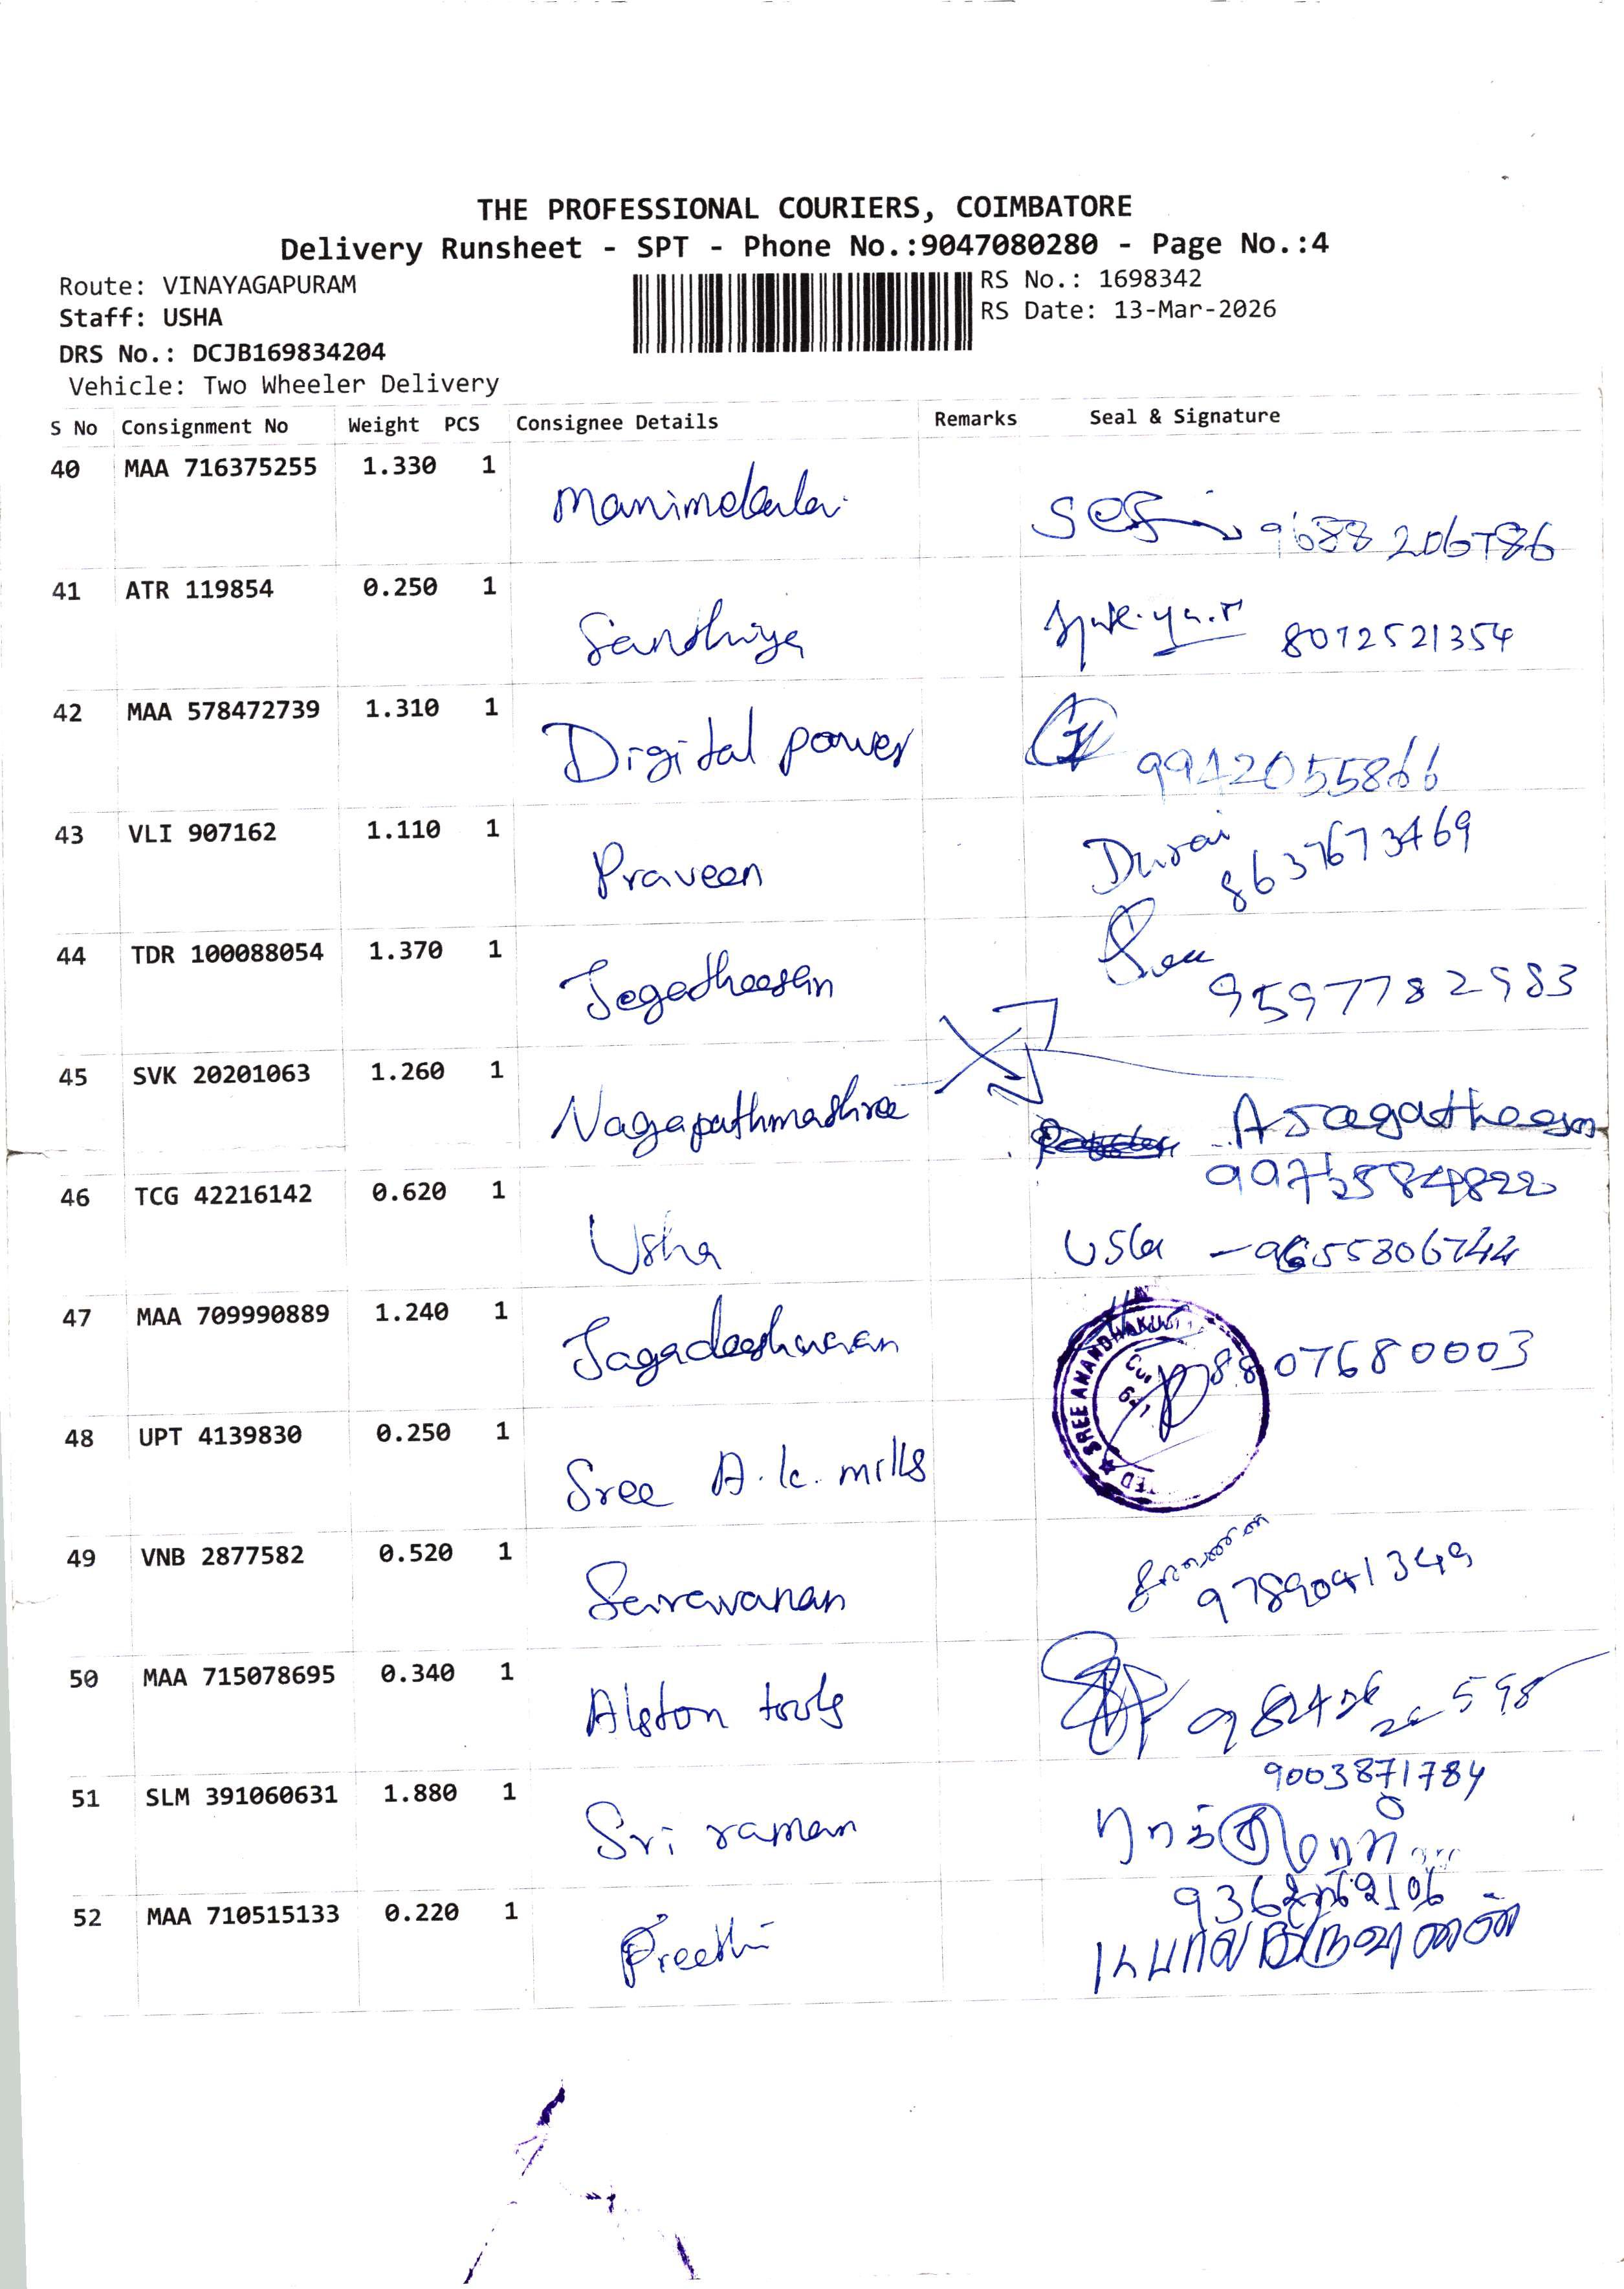 THE PROFESSIONAL COURIERS, COIMBATORE
Delivery Runsheet - SPT - Phone No.:9047080280 - Page No.:4
Route: VINAYAGAPURAM
RS No.: 1698342
Staff: USHA
RS Date: 13-Mar-2026
DRS No.: DCJB169834204
Vehicle: Two Wheeler Delivery
S No Consignment No Weight PCS Consignee Details Remarks Seal & Signature
40 MAA 716375255 1.330 1
Manimekalai
41 ATR 119854 0.250 1
Sandhiya 8072521354
42 MAA 578472739 1.310 1
Digital power
43 VLI 907162 1.110 1
Praveen Durai 8637673469
44 TDR 100088054 1.370 1
Jegatheesan 9597782983
45 SVK 20201063 1.260 1
Nagapathmashree
46 TCG 42216142 0.620 1
Usha Usha
47 MAA 709990889 1.240 1
Jagadeeshwaran 8807680003
48 UPT 4139830 0.250 1
SREE ANANDHAKUM
Sree A.k. mills
49 VNB 2877582 0.520 1
Saravanan 9789041349
50 MAA 715078695 0.340 1
Alston tools
51 SLM 391060631 1.880 1 9003871784
Sri raman
52 MAA 710515133 0.220 1
Preethi